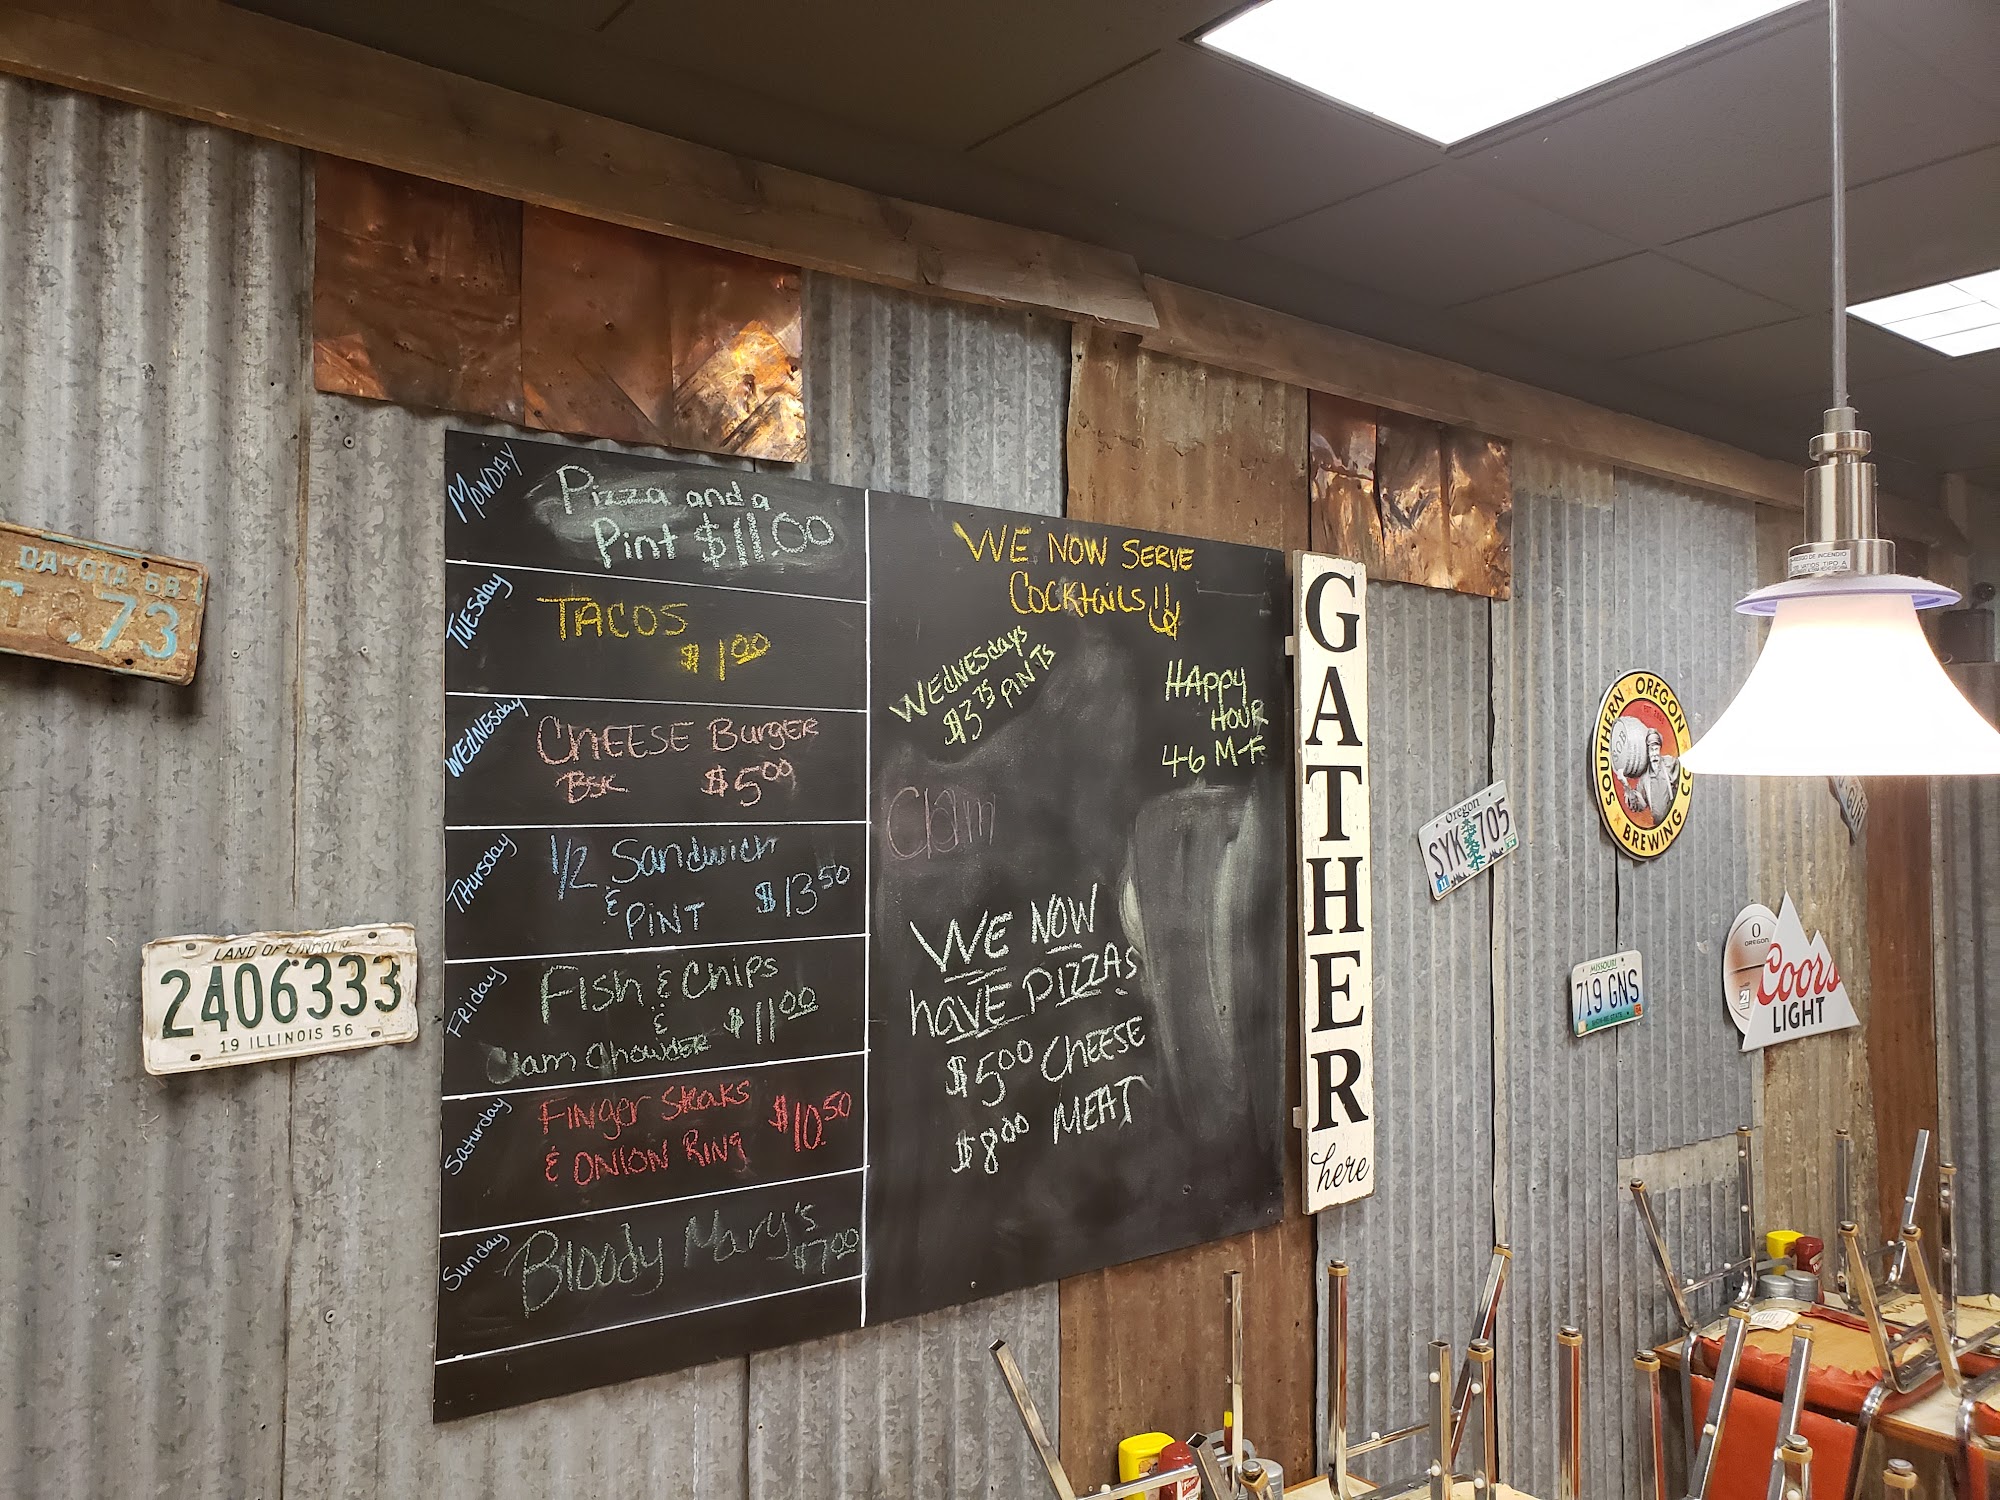 DAKOTA 68
73
LAND OF LINCOLN
2406333
19 ILLINOIS 56
MONDAY
Pizza and a
Pint $11.00
TUESday
TACOS
$1.00
WEDNESday
CHEESE BurgER
BSK $5.00
THursday
1/2 Sandwich
&
PINT $13.50
Friday
Fish & Chips
& $11.00
Clam Chowder
Saturday
FINger Steaks $10.50
& ONION RINg
Sunday
Bloody Mary's
$7.00
WE NOW SERVE
COCKtAiLS!!
WEDNESdays
$3.75 PINTS
HAppy
HOUR
4-6 M-F
Clam
WE NOW
hAVE PIZZAS
$5.00 CHEESE
$8.00 MEAT
GATHER
here
Oregon
SYK 705
SOUTHERN OREGON
BREWING CO
MISSOURI
719 GNS
SHOW-ME STATE
O
OREGON
Coors
LIGHT